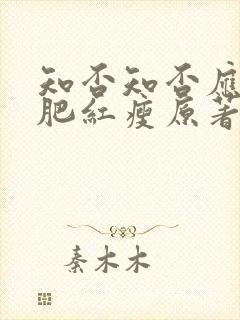 知否知否應
肥紅瘦原著
秦木木